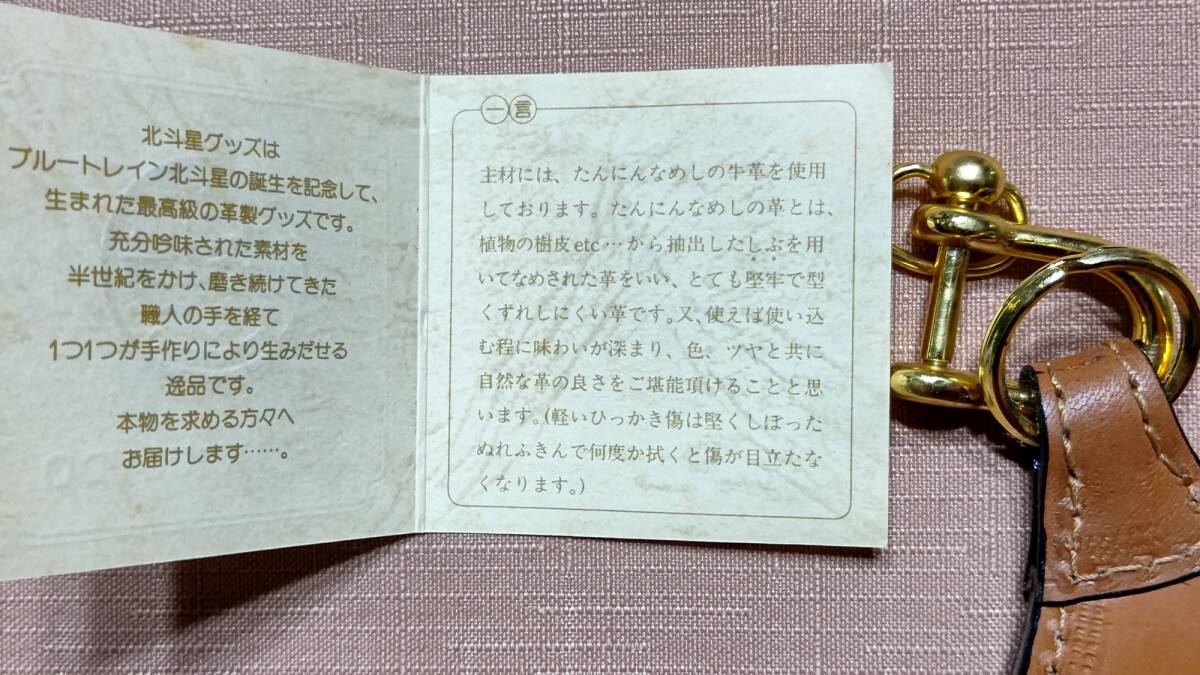 北斗星グッズは
ブルートレイン北斗星の誕生を記念して、
生まれた最高級の革製グッズです。
充分吟味された素材を
半世紀をかけ、磨き続けてきた
職人の手を経て
1つ1つが手作りにより生みだせる
逸品です。
本物を求める方々へ
お届けします……。
一言
主材には、たんにんなめしの牛革を使用
しております。たんにんなめしの革とは、
植物の樹皮etc…から抽出したしぶを用
いてなめされた革をいい、とても堅牢で型
くずれしにくい革です。又、使えば使い込
む程に味わいが深まり、色、ツヤと共に
自然な革の良さをご堪能頂けることと思
います。(軽いひっかき傷は堅くしぼった
ぬれふきんで何度か拭くと傷が目立たな
くなります。)